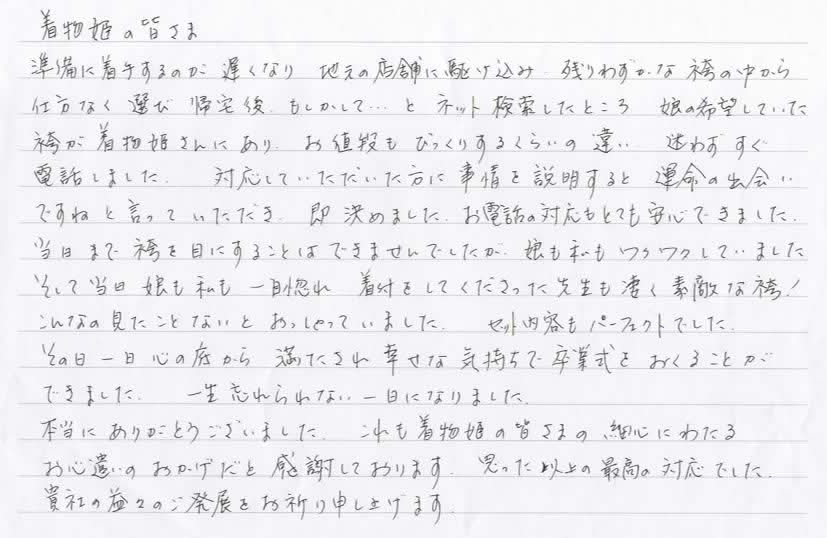 着物姫の皆さま
準備に着手するのが遅くなり 地元の店舗に駆け込み 残りわずかな袴の中から
仕方なく選び 帰宅後 もしかして…と ネット検索したところ 娘の希望していた
袴が着物姫さんにあり、お値段もびっくりするくらいの違い 迷わずすぐ
電話しました。 対応していただいた方に事情を説明すると 運命の出会い
ですねと言っていただき 即決めました。お電話の対応もとても安心できました。
当日まで袴を目にすることはできませんでしたが 娘も私もワクワクしていました
そして当日 娘も私も 一目惚れ 着付をしてくださった先生も凄く素敵な袴!
こんなの見たことないとおっしゃっていました。 セット内容もパーフェクトでした。
その日一日心の底から 満たされ幸せな気持ちで卒業式をおくることが
できました。 一生忘れられない一日になりました。
本当にありがとうございました。 これも着物姫の皆さまの細心にわたる
お心遣いのおかげだと感謝しております。思った以上の最高の対応でした。
貴社の益々のご発展をお祈り申し上げます。